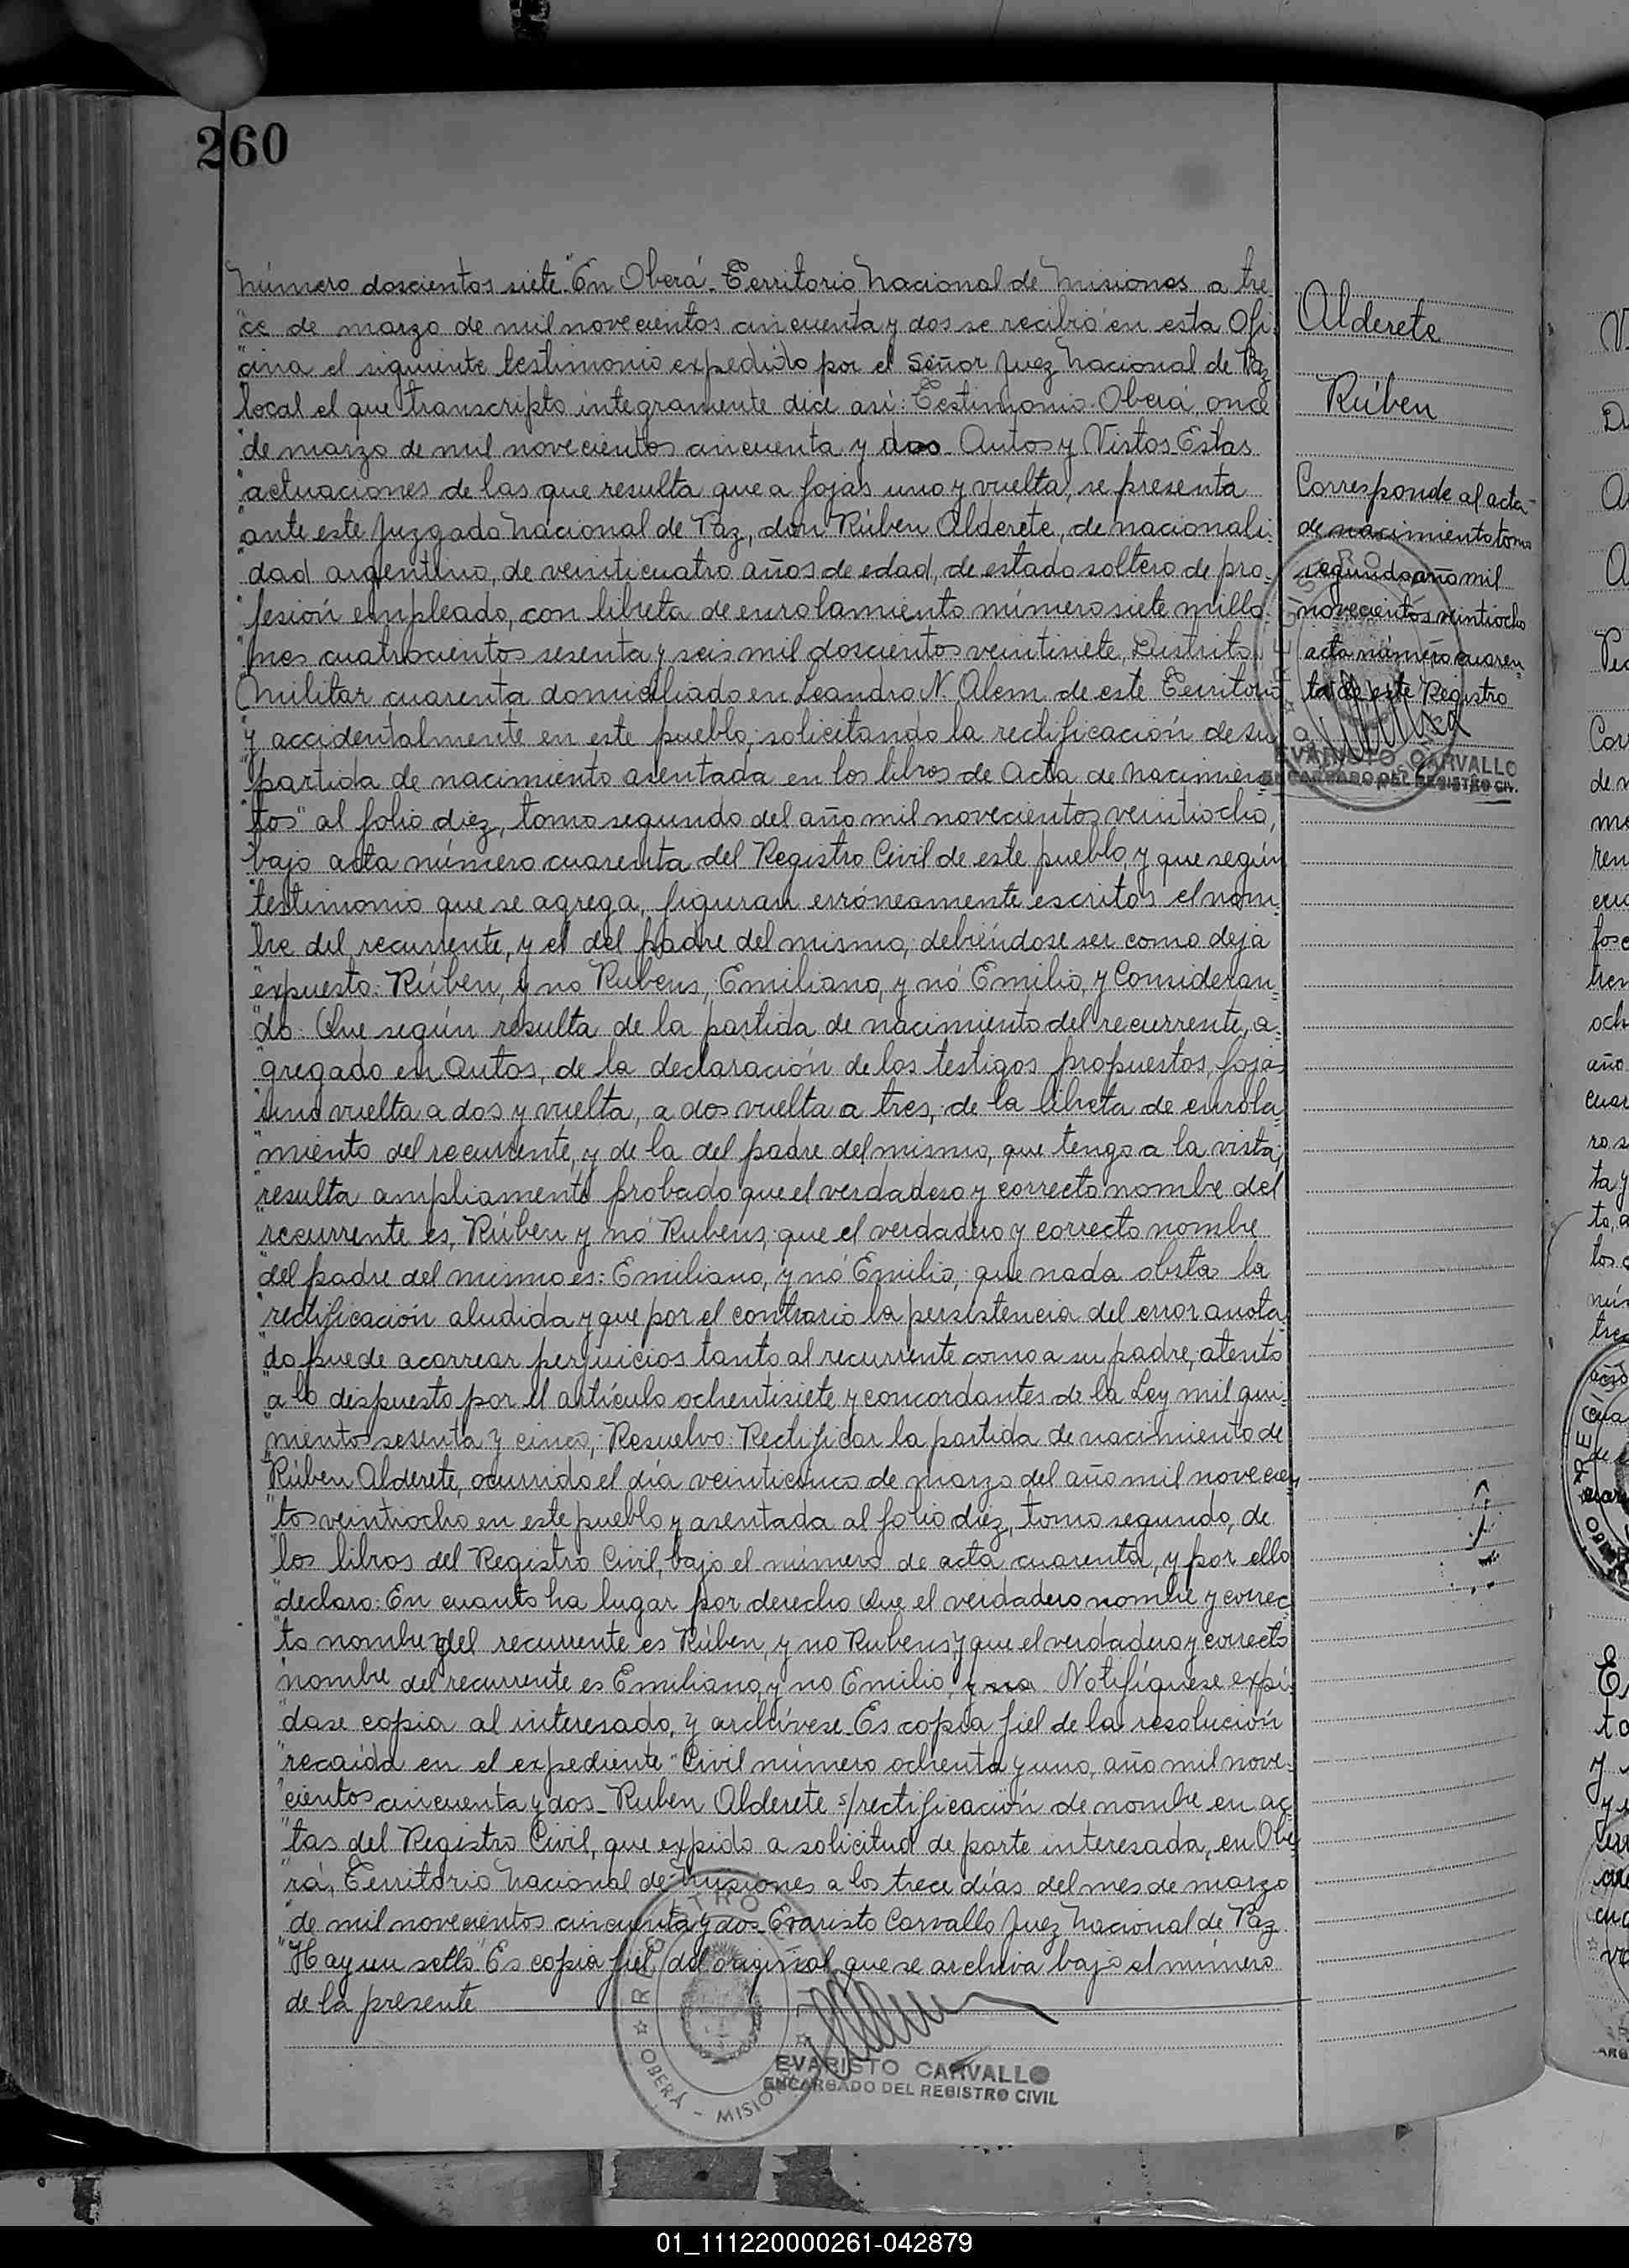 260
Número doscientos siete "En Oberá - Territorio Nacional de Misiones a tre-
"ce de marzo de mil novecientos cincuenta y dos se recibió en esta Ofi-
"cina el siguiente testimonio expedido por el Señor Juez Nacional de Paz
"local el que transcripto integramente dice así: Testimonio. Oberá, once
"de marzo de mil novecientos cincuenta y dos - Autos y Vistos - Estas
"actuaciones de las que resulta que a fojas uno y vuelta, se presenta
"ante este Juzgado Nacional de Paz, don Rúben Alderete, de nacionali-
"dad argentino, de veinticuatro años de edad, de estado soltero de pro-
"fesión empleado, con libreta de enrolamiento número siete millo-
"nes cuatrocientos sesenta y seis mil doscientos veintisiete, Distrito
Militar cuarenta domiciliado en Leandro N. Alem de este Territorio
"y accidentalmente en este pueblo, solicitando la rectificación de su
"partida de nacimiento asentada en los libros de Acta de Nacimien-
"tos" al folio diez, tomo segundo del año mil novecientos veintiocho,
"bajo acta número cuarenta del Registro Civil de este pueblo, y que según
"testimonio que se agrega, figuran erróneamente escritos el nom-
"bre del recurrente, y el del padre del mismo, debiéndose ser como deja
"expuesto: Rúben, y no Rubens, Emiliano, y nó Emilio, y Consideran-
"do: Que según resulta de la partida de nacimiento del recurrente, a-
"gregado en Autos, de la declaración de los testigos propuestos, fojas
"uno vuelta a dos y vuelta, a dos vuelta a tres, de la libreta de enrola-
"miento del recurrente, y de la del padre del mismo, que tengo a la vista,
"resulta ampliamente probado que el verdadero y correcto nombre del
"recurrente es, Rúben y nó Rubens, que el verdadero y correcto nombre
"del padre del mismo es: Emiliano, y nó Emilio, que nada obsta la
"rectificación aludida y que por el contrario la persistencia del error anota-
"do puede acarrear perjuicios tanto al recurrente como a su padre, atento
"a lo despuesto por el artículo ochentisiete y concordantes de la Ley mil qui-
"nientos sesenta y cinco, Resuelvo: Rectificar la partida de nacimiento de
"Rúben Alderete, ocurrido el día veinticinco de marzo del año mil novecien-
"tos veintiocho en este pueblo y asentada al folio diez, tomo segundo, de
"los libros del Registro Civil, bajo el número de acta cuarenta, y por ello
"declaro: En cuanto ha lugar por derecho Que el verdadero nombre y correc-
"to nombre del recurrente es Rúben, y no Rubens, y que el verdadero y correcto
"nombre del recurrente es Emiliano, y no Emilio, y no Notifíquese expí-
"dase copia al interesado, y archívese - Es copia fiel de la resolución
"recaída en el expediente "Civil número ochenta y uno, año mil nove-
"cientos cincuenta y dos - Ruben Alderete s/rectificación de nombre en ac-
"tas del Registro Civil, que expido a solicitud de parte interesada, en Obe-
"rá, Territorio Nacional de Misiones a los trece días del mes de marzo
"de mil novecientos cincuenta y dos - Evaristo Carvallo Juez Nacional de Paz
"Hay un sello" Es copia fiel del original que se archiva bajo el número
de la presente
EVARISTO CARVALLO
ENCARGADO DEL REGISTRO CIVIL
OBERÁ - MISIONES
Alderete
Rúben
Corresponde al acta
de nacimiento tomo
segundo año mil
novecientos veintiocho
acta número cuaren-
ta de este Registro
EVARISTO CARVALLO
ENCARGADO DEL REGISTRO CIV.
01_111220000261-042879